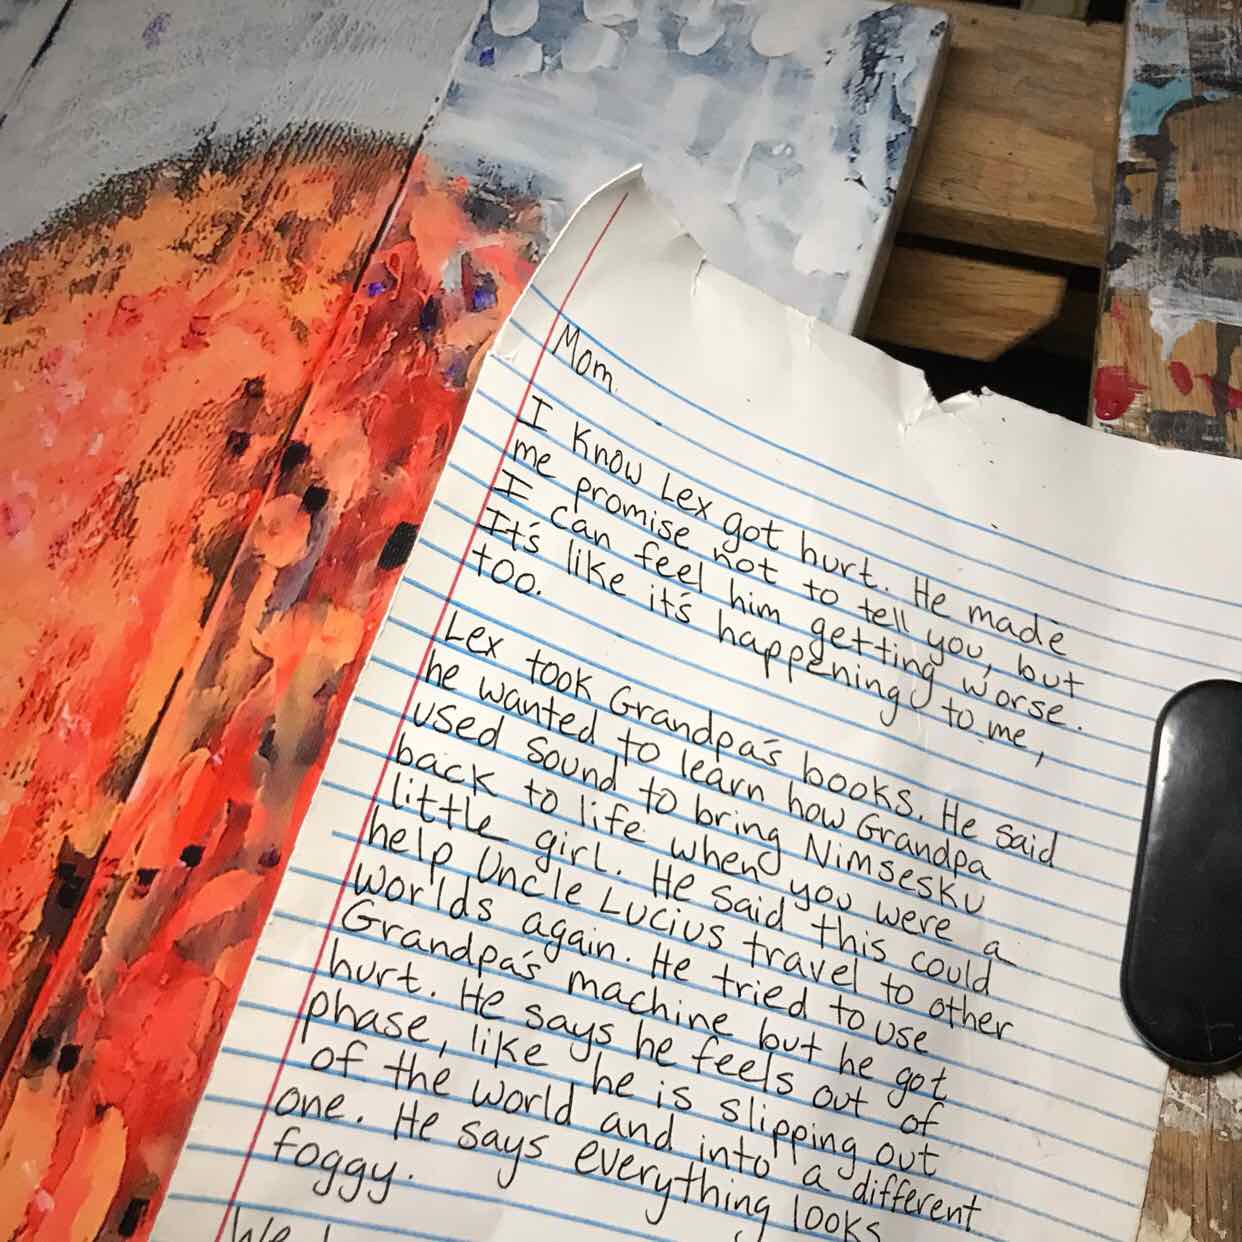 Mom.
I know Lex got hurt. He made
me promise not to tell you, but
I can feel him getting worse.
It's like it's happening to me,
too.
Lex took Grandpa's books. He said
he wanted to learn how Grandpa
used sound to bring Nimsesku
back to life when you were a
little girl. He said this could
help Uncle Lucius travel to other
worlds again. He tried to use
Grandpa's machine but he got
hurt. He says he feels out of
phase, like he is slipping out
of the world and into a different
one. He says everything looks
foggy.
We